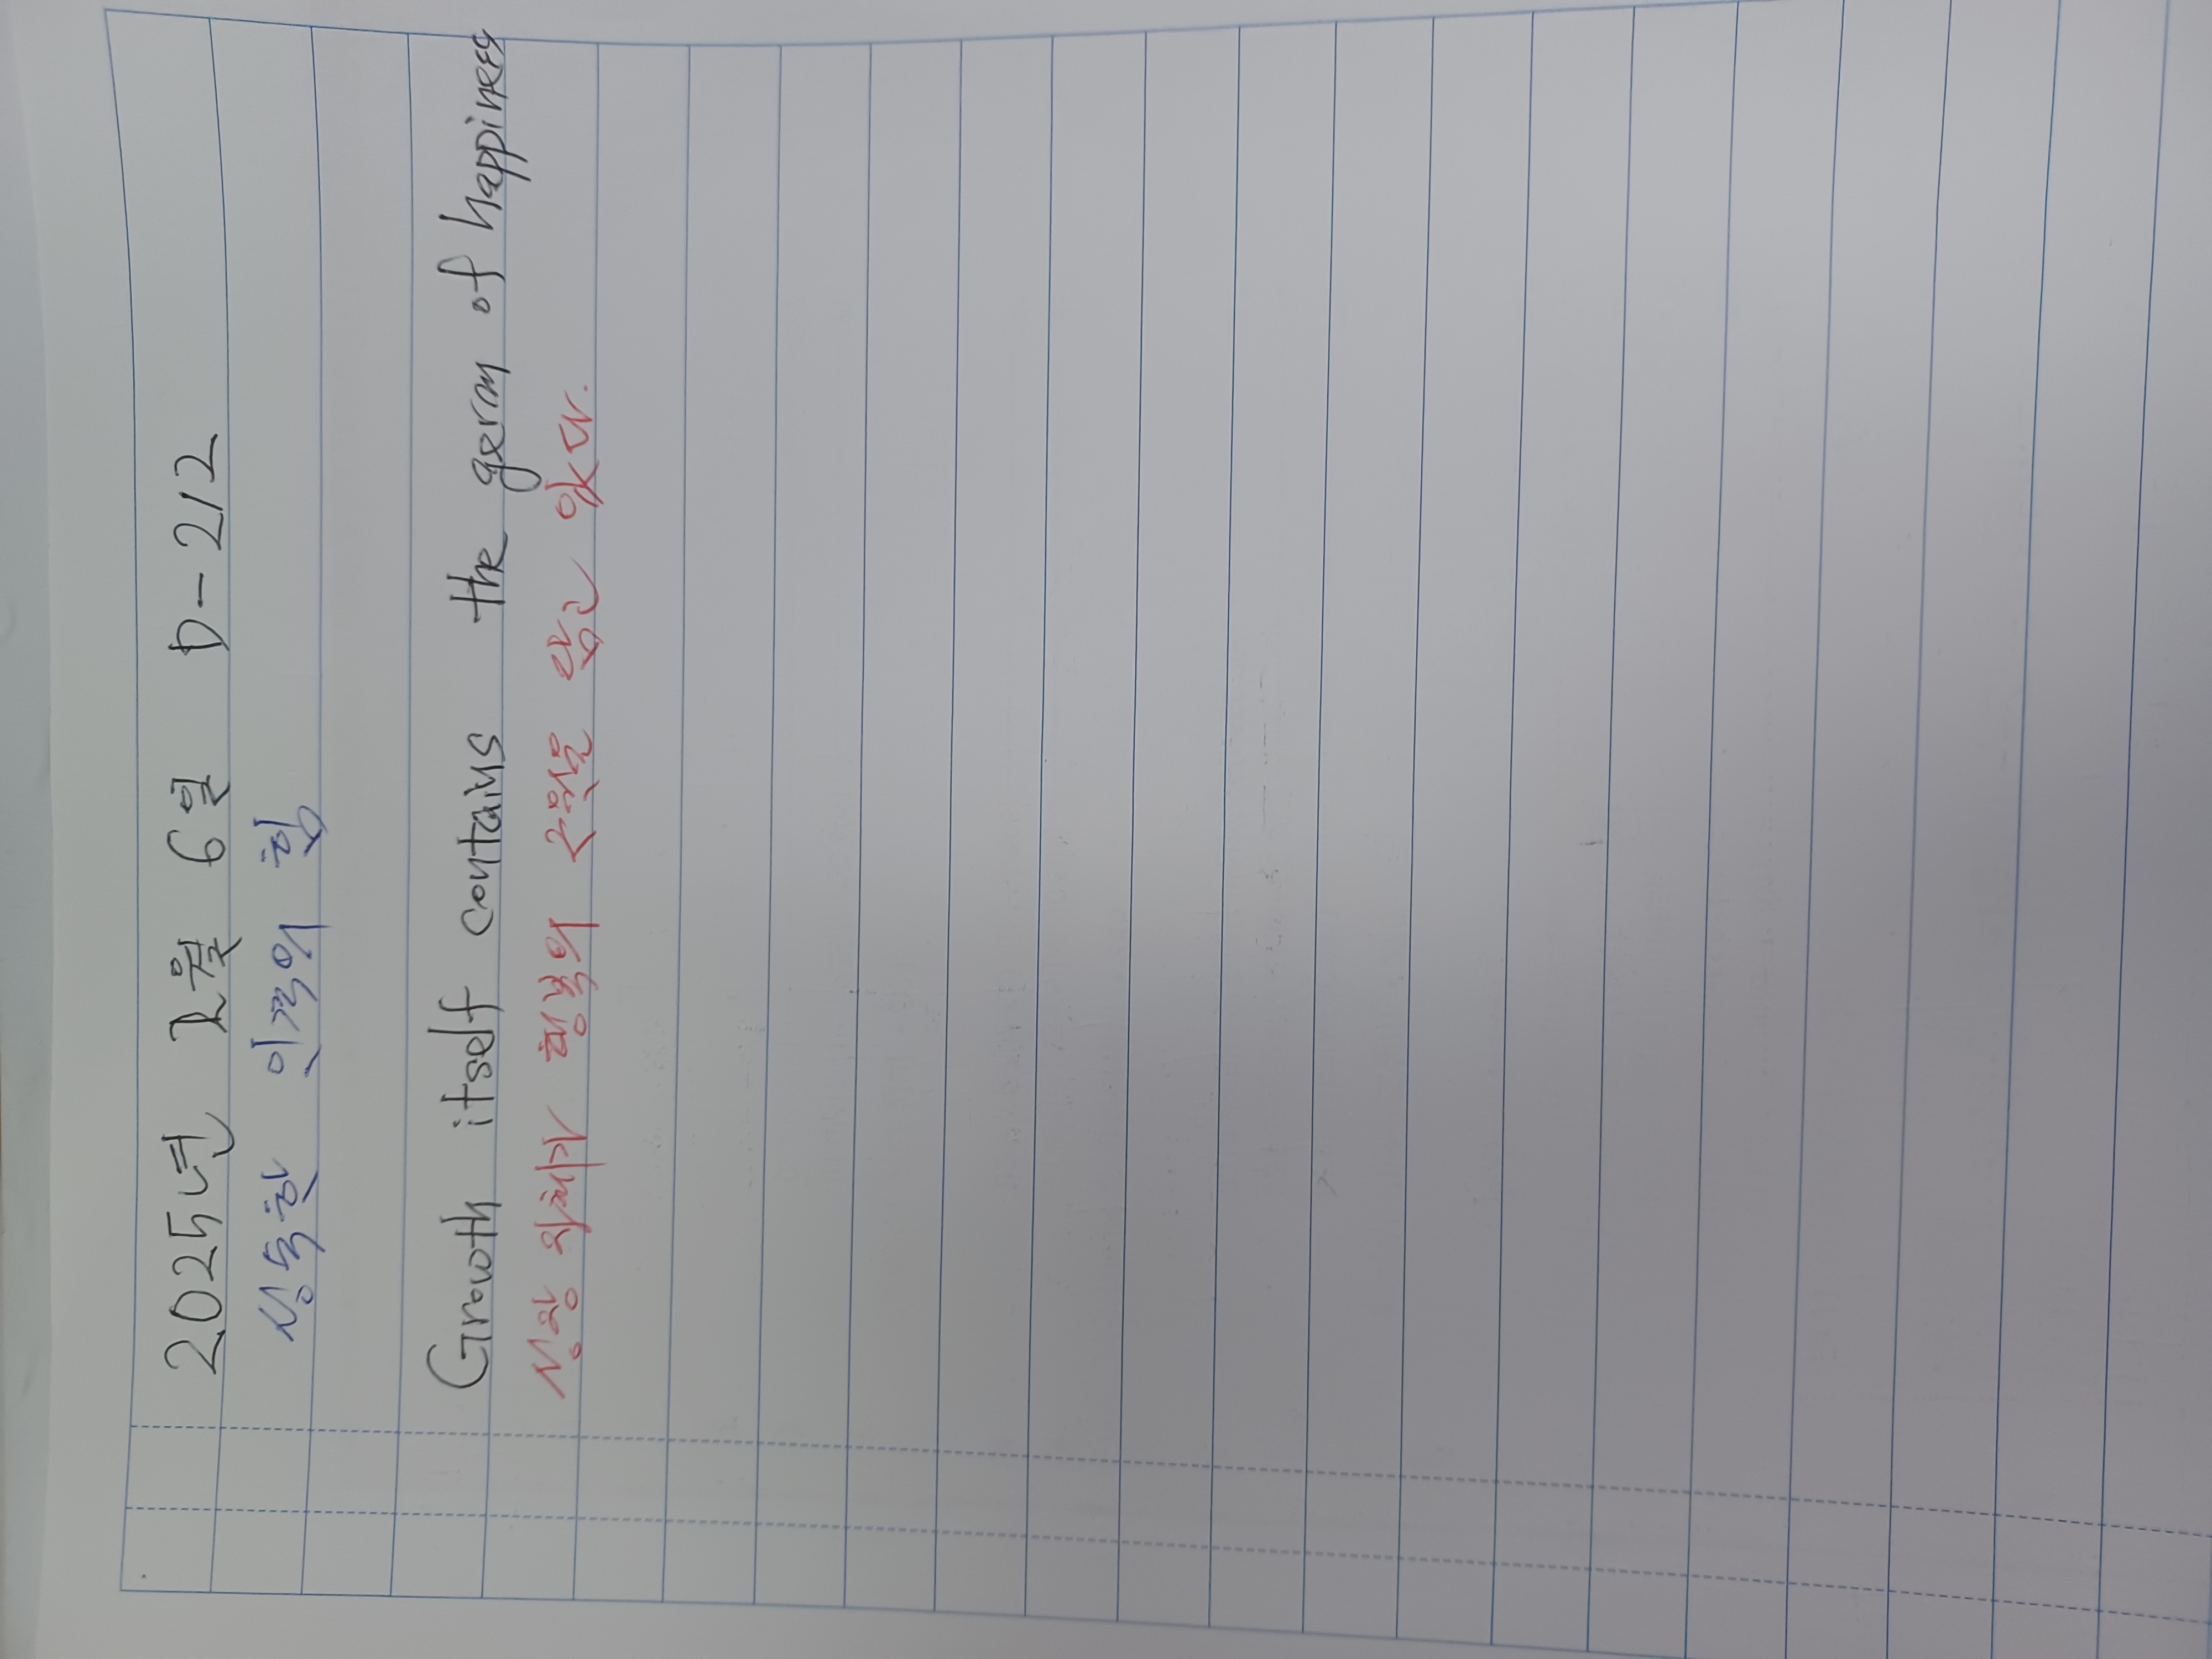 2025년 2월 6일 D-212
성숙한 인격의 힘
Growth itself contains the germ of happiness
성장 자체가 행복의 담고 있다.